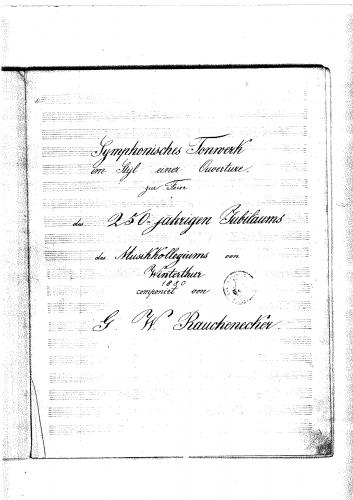 Symphonisches Tonwerk
im Styl einer Ouverture
zur Feier
des 250-jährigen Jubiläums
des Musikkollegiums von
Winterthur
1880
componirt von
G W Rauchenecker.